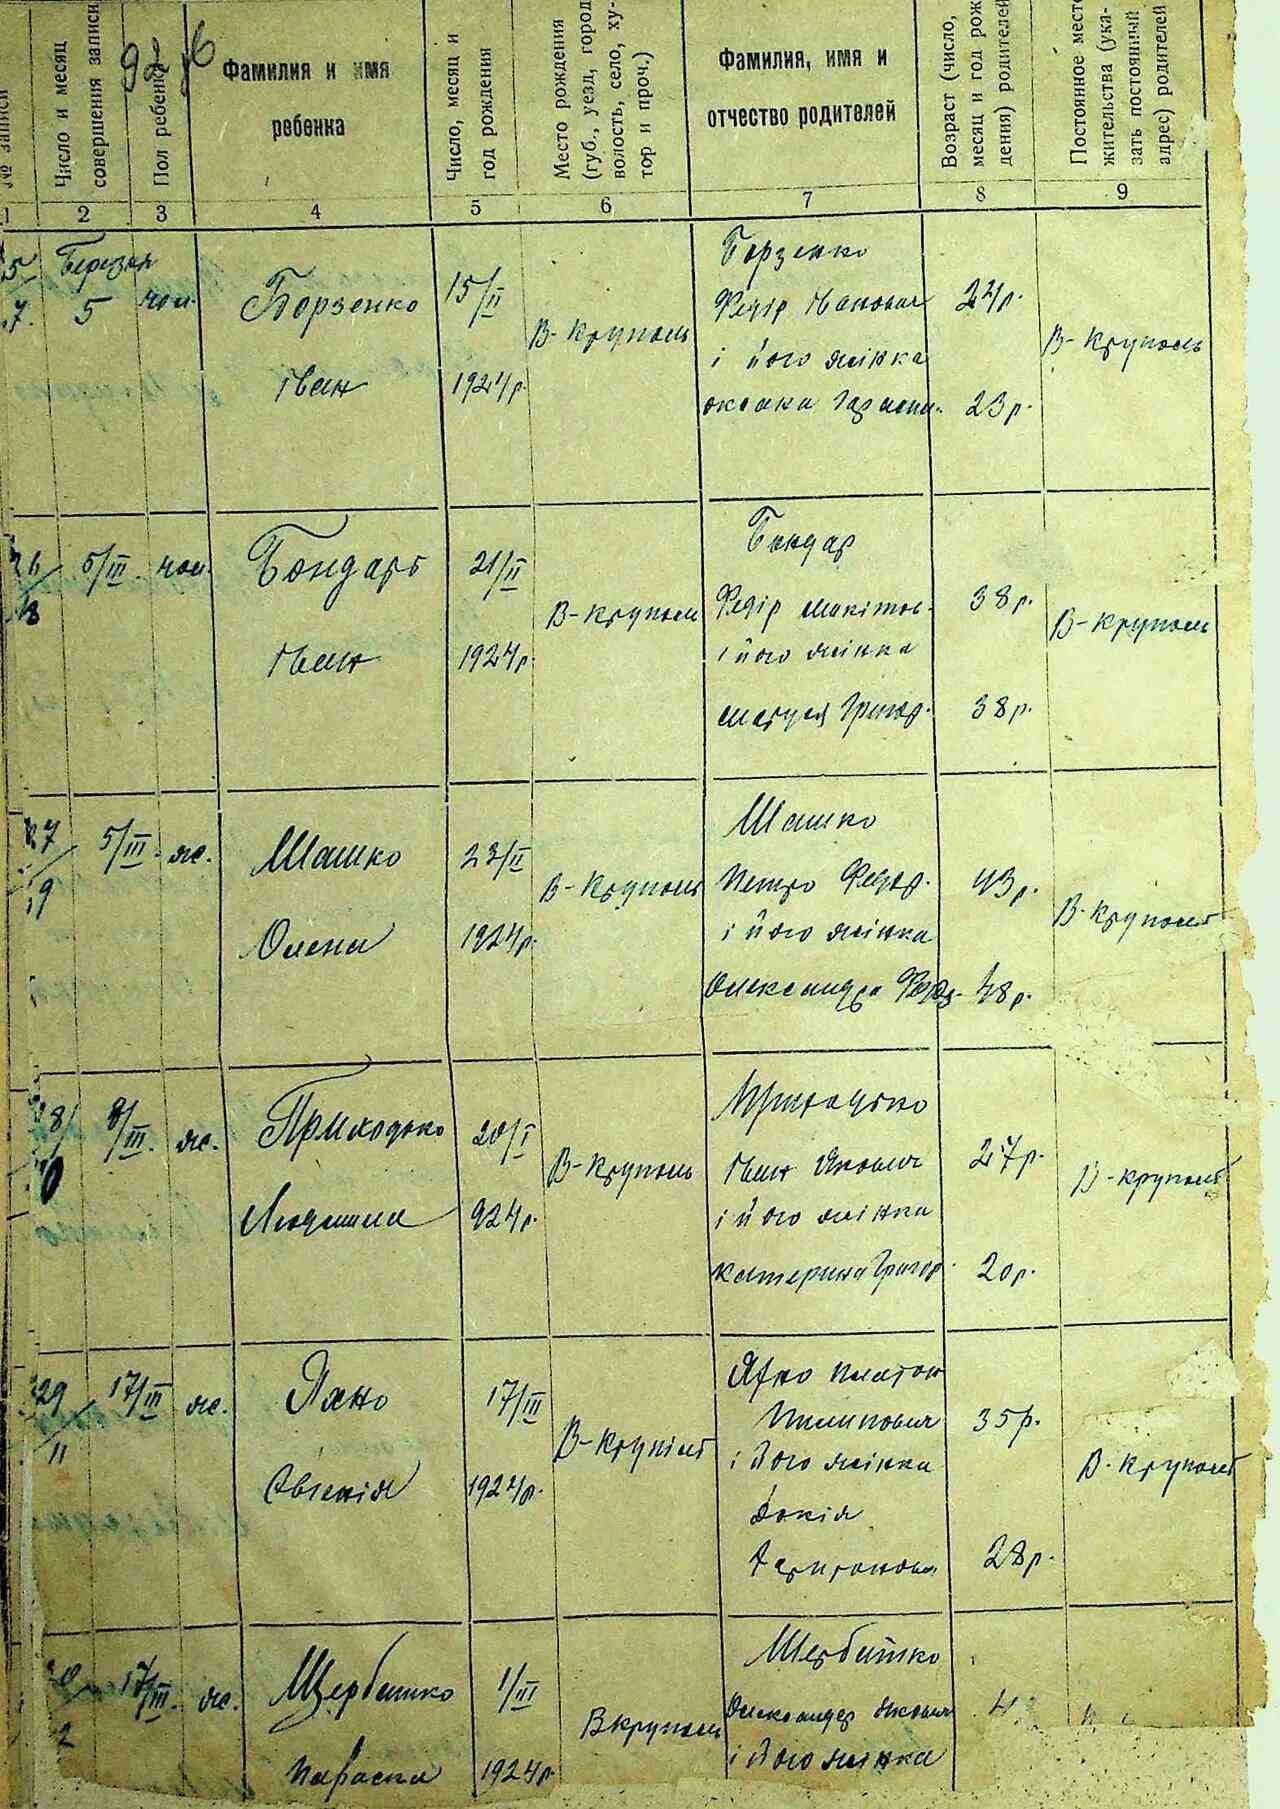 № записи
Число и месяц
совершения записи
Пол ребенка
Фамилия и имя
ребенка
Число, месяц и
год рождения
Место рождения
(губ., уезд, город,
волость, село, ху-
тор и проч.)
Фамилия, имя и
отчество родителей
Возраст (число,
месяц и год рож-
дения) родителей
Постоянное место
жительства (ука-
зать постоянный
адрес) родителей
1 2 3 4 5 6 7 8 9
Березня
5 чол.
Борзенко
Іван
15/II
1924р.
В-Круполь
Борзенко
Федір Іванович 24р.
і його жінка
Оксана 23р.
В-Круполь
5/III чол.
Бондарь
Іван
21/II
1924р.
В-Круполь
Бондар
Федір Микитов. 38р.
і його жінка
Маруся Григор. 38р.
В-Круполь
27/9
5/III. ж.
Шашко
Олена
23/II
1924р.
В-Круполь
Шашко
Петро Федор. 43р.
і його жінка
Олександра 48р.
В-Круполь
8/III. ж.
Приходько
Людмила
20/I
924р.
В-Круполь
Приходько
Іван Якович 27р.
і його жінка
Катерина Григор. 20р.
В-Круполь
29/11
17/III ж.
Яхно
Євгенія
17/III
1924р.
В-Крупіль
Яхно Платон
Пилипович 35р.
і його жінка
Докія
Харитоновна 28р.
В-Круполь
17/III. ж.
Щербашко
Параска
1/III
1924р.
В круполь
Олександер Якович
і його жінка